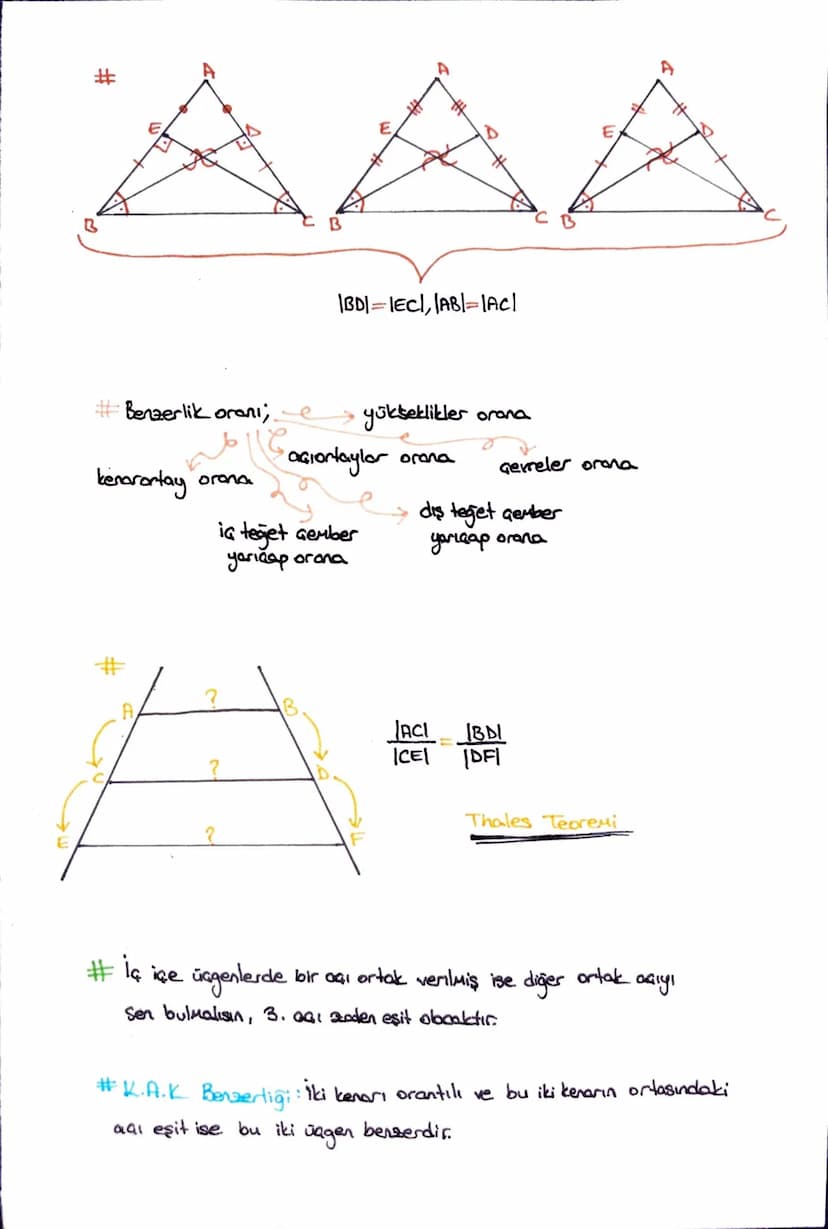 #
A A A
E D E D E D
B C B C B C
|BD|=|EC|, |AB|=|AC|
# Benzerlik oranı; yükseklikler oranına
kenarortay oranına açıortaylar oranına çevreler oranına
iç teğet çember
yarıçap oranına
dış teğet çember
yarıçap oranına
#
A ? B
C ? D
E ? F
|AC| = |BD|
|CE| |DF|
Thales Teoremi
# İç içe üçgenlerde bir açı ortak verilmiş ise diğer ortak açıyı
sen bulmalısın, 3. açı zaten eşit olacaktır.
# K.A.K Benzerliği: İki kenarı orantılı ve bu iki kenarın ortasındaki
açı eşit ise bu iki üçgen benzerdir.